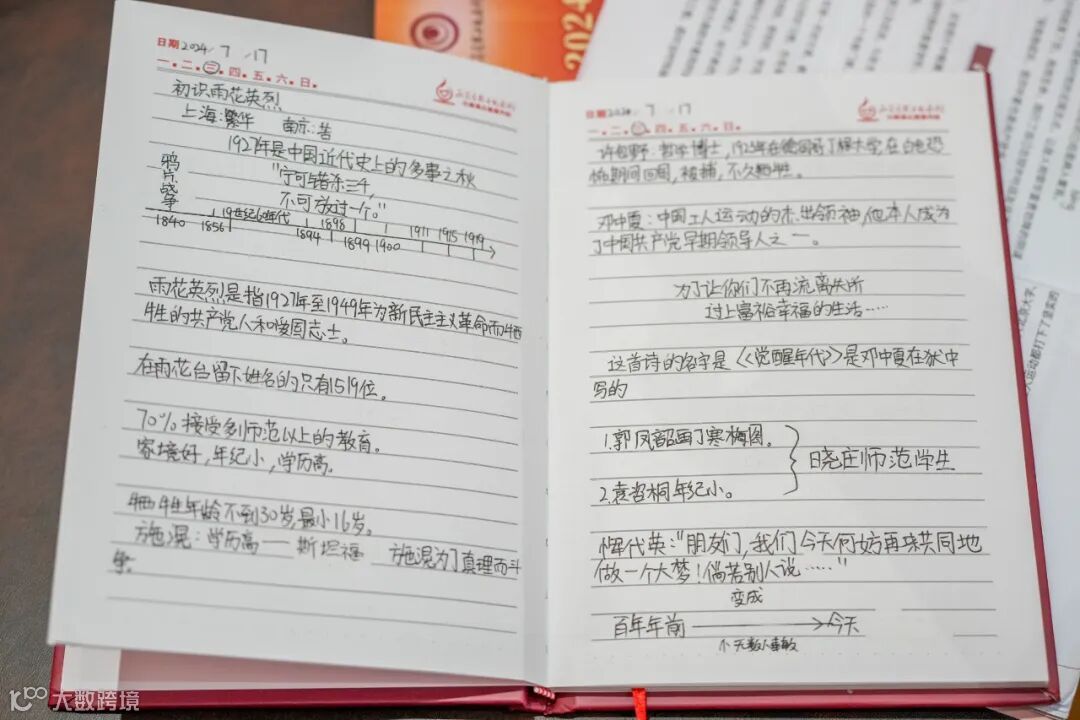 日期 2024 / 7 / 17
一.二.三.四.五.六.日.
初识雨花英烈
上海:繁华 南京:苦
1927年是中国近代史上的多事之秋
"宁可错杀三千,
不可放过一个。"
鸦片战争
19世纪60年代 1898 1911 1915 1919
1840 1856 1894 1899 1900
雨花英烈是指1927年至1949年为新民主主义革命而牺
牲的共产党人和爱国志士。
在雨花台留下姓名的只有1519位。
70%接受到师范以上的教育。
家境好,年纪小,学历高。
牺牲年龄不到30岁,最小16岁。
施滉:学历高——斯坦福 施滉为了真理而斗
争。
日期 2024 / 7 / 17
一.二.三.四.五.六.日.
许包野:哲学博士,1925年在德国哥丁根大学,在白色恐
怖期间回国,被捕,不久牺牲。
邓中夏:中国工人运动的杰出领袖,他本人成为
了中国共产党早期领导人之一。
为了让你们不再流离失所
过上富裕幸福的生活……
这首诗的名字是《觉醒年代》是邓中夏在狱中
写的
1.郭凤韶画了寒梅图。
2.袁咨桐年纪小。
晓庄师范学生
恽代英:"朋友们,我们今天何妨再来共同地
做一个大梦!倘若别人说……"
变成
百年年前 今天
2024
大数跨境